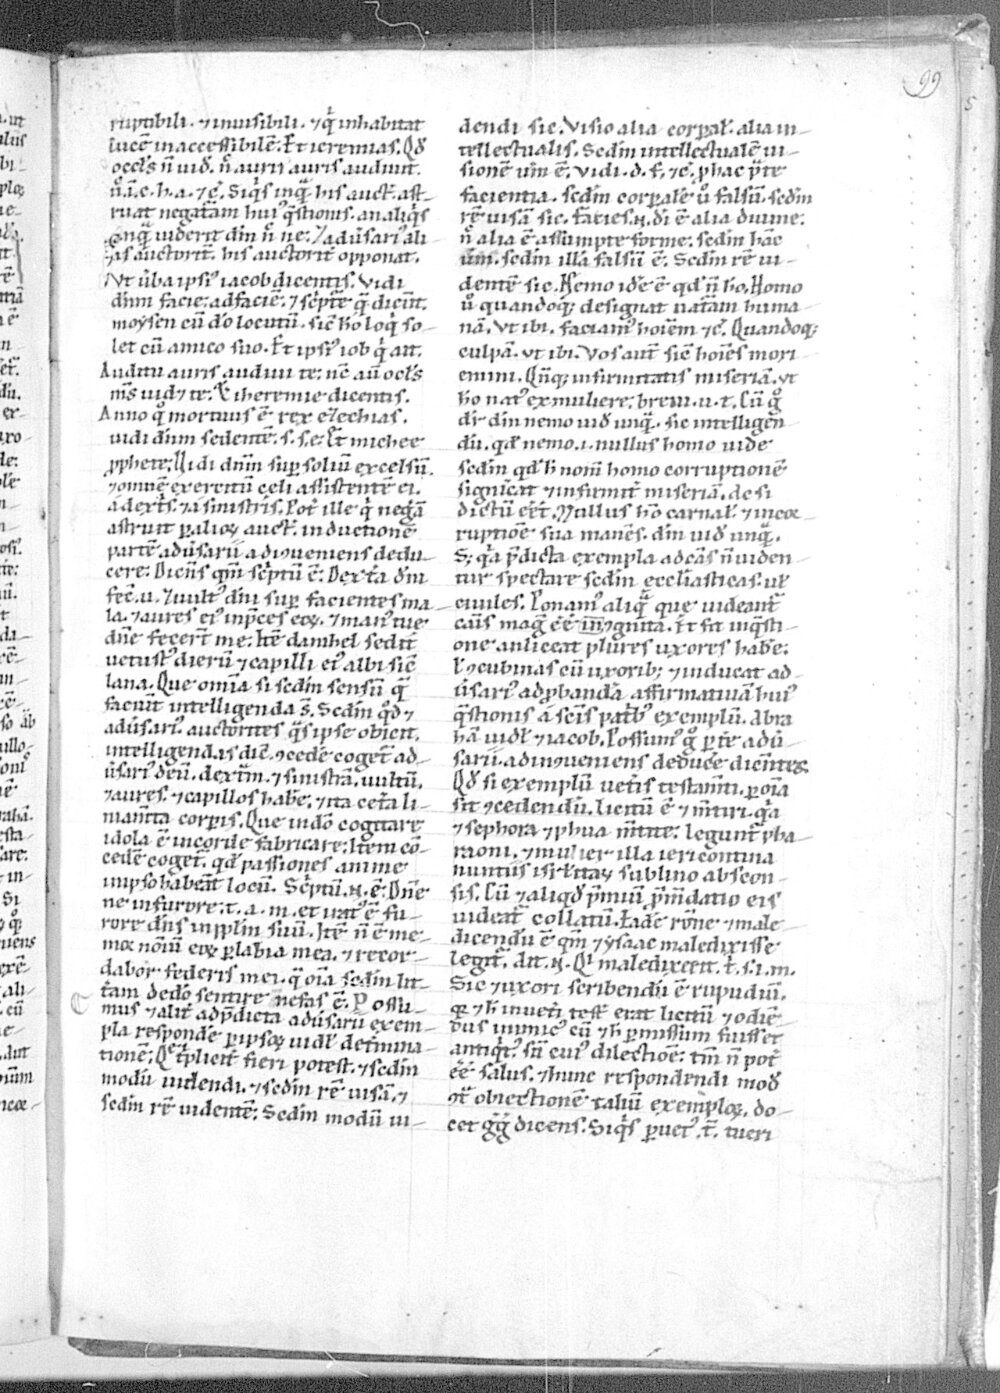 99
ruptibili. ⁊ inuisibili. ⁊ q̇ inhabitat
lucē inaccessibilē. Et ieremias. Qđ
ocl's n̄ uid̄. n̄ auri auris audiuit.
⁊ c̄. Siq̇s inq̄ his auct. ast
ruat negatam hui' q̄stionis. an aliq̇s
unq̄ uiderit dīm n̄ ne: ⁊ adūsari' ali
as auctorit̄. his auctorit̄ opponat.
Vt ūba ipsi' iacob dicentis. Vidi
dīm facie: ad faciē. ⁊ sc̄pt̄e q̄ dicūt.
moysen cū dō locutū. sic̄ hō loq̇ so-
let cū amico suo. Et ipsi' iob q̇ ait.
Auditu auris audiui te: nc̄ aū ocl's
m̄s uid& te. ⁊ iheremie dicentis.
Anno q̊ mortuus ē rex ezechias.
uidi dīm sedentē. s. s. e. Et michee
ꝓphete: Uidi dnīm suꝑ soliū excelsū.
⁊ omnē exercitū celi assistentē ei.
a dext̄s. ⁊ a sinistris. Pot' ille q̇ negā
astruit ꝑ alioꝝ auct. inductionē
partē adūsarii adinueniens dedu-
cere: Dicēs qm̄ sc̄ptū ē: Dext̄a dn̄i
fec̄. u. ⁊ uult' dn̄i suꝑ facientes ma-
la. ⁊ aures ei' inp̄ces eoꝝ. ⁊ man' tue
dn̄e fecert̄ me. Itē danihel sedit
uetust' dierū ⁊ capilli ei' albi sic̄
lana. Que omīa si sedm̄ sensū q̄
faciūt intelligenda s̄. Sedm̄ q̊d ⁊
adūsari' auctorites q̄s ipse obicit.
intelligendas dic̄. ꝯcede coget̄ ad-
ūsari' deū. dext̄am. ⁊ sinistrā. uultū.
⁊ aures. ⁊ capillos habe. ⁊ ita cet̄a li-
niam̄ta corꝑis. Que in dō cogitare
idola ē in corde fabricare: Item cō-
cedē coget̄. qđ passiones anime
in ipso habeāt locū. Sc̄ptū. n̄. ē: Dn̄e
ne in furore. t. a. m. et irat' ē fu-
rore dn̄s in ipplm̄ suū. Itē n̄ ē me-
mor nomīū eoꝝ ꝑ labia mea. ⁊ recor-
dabor federis mei. q̄ oīa sedm̄ lit-
t̄am dedō sentire nefas ē. Possu-
mus ⁊ alit̄ ad p̄dicta adūsarii exem-
pla respondē ꝑ ipsoꝝ uidl' det̄mina-
tionē: Q t̄plicit̄ fieri potest. ⁊ sedm̄
modū uidendi. ⁊ sedm̄ rē uisā. ⁊
sedm̄ rē uidentē: Sedm̄ modū ui-
dendi sic. Visio alia corꝑal'. alia in-
tellectualis. Sedm̄ intellectualē ui-
sionē uīn ē. vidi. d. f. ⁊ c̄. ꝓ hac ꝑte
facientia. sedm̄ corꝑale ū falsū. sedm̄
rē uisā sic. facies. n̄. di ē alia diuine:
n̄ alia ē assumpte forme: sedm̄ hāc
uīn. sedm̄ illā falsū ē: Sedm̄ rē ui-
dentē sic. Nemo idē ē qđ n̄ hō. Homo
ū quandoq; designat nat̄am huma-
nā. Vt ibi. faciam' hoiēm ⁊ c̄. Quandoq;
culpā. vt ibi. Vos aut̄ sic̄ hoiēs mori
emini. Qn̄q; infirmitatis miseriā. vt
hō nat' ex muliere. breui. u. t. Cū g̊
dr̄ dīm nemo uid̄ unq̄. sic intelligēn
dū. qđ nemo. i. nullus homo uide
sedm̄ qđ h̄ nom̄ homo corruptionē
significat ⁊ infirmit̄ miseriā. ac si
dictū eēt. Nullus hō carnal' ⁊ incor
ruptiōe sua manēs. dīm uid̄ unq̄.
S; q̄a p̄dicta exempla ad cās n̄ uiden
tur spectare sedm̄ eccl'iasticas. ul'
ciuiles. Ponam' aliq̄ que uideant̄
cāis mag̊ eē in ꝯgruita. Et sit in q̄sti-
one an liceat plures uxores habe:
l' ꝯcubinas cū uxorib; ⁊ inducat ad
ūsari' ad ꝓbandā affirmatiuā hui'
q̄stionis a sc̄is patb' exemplū. Abra
hā uidl' ⁊ iacob. Possum' g̊ ꝑte adū-
sarii adinueniens deduce dicentes
Qđ si exemplū uet̄is testam̄ti. ꝑ oīa
sit ꝯcedendū. licitū ē ⁊ m̄tiri. q̄a
⁊ sephora ⁊ phua m̄tite: legunt̄ pha-
raoni. ⁊ mulier illa iericontina
nuntius isrl'itaꝝ sub lino abscon-
sis. Cū ⁊ aliqđ p̄miū p̄ m̄datio eis
uideat̄ collatū. Eadē rōne ⁊ male-
dicendū ē qm̄ ⁊ ysaac maledixisse
legit̄. ait. n̄. Q' maledixerit. t̄. s. i. m.
Sic ⁊ uxori scribendū ē rupudiū.
qr ⁊ h̄ in uet̄i test̄ erat licitū ⁊ odiē-
dus inimic' cū ⁊ h̄ ꝑmissum fuisset
antiq̇t'. sn̄ cui' dilectiōe: tm̄ n̄ pot̄
eē salus. ⁊ hunc respondendi mod̄
ꝯt̄ obiectionē taliū exemploꝝ. do-
cet gg̊ dicens. Siq̇s ꝑ uet'. t̄. tueri